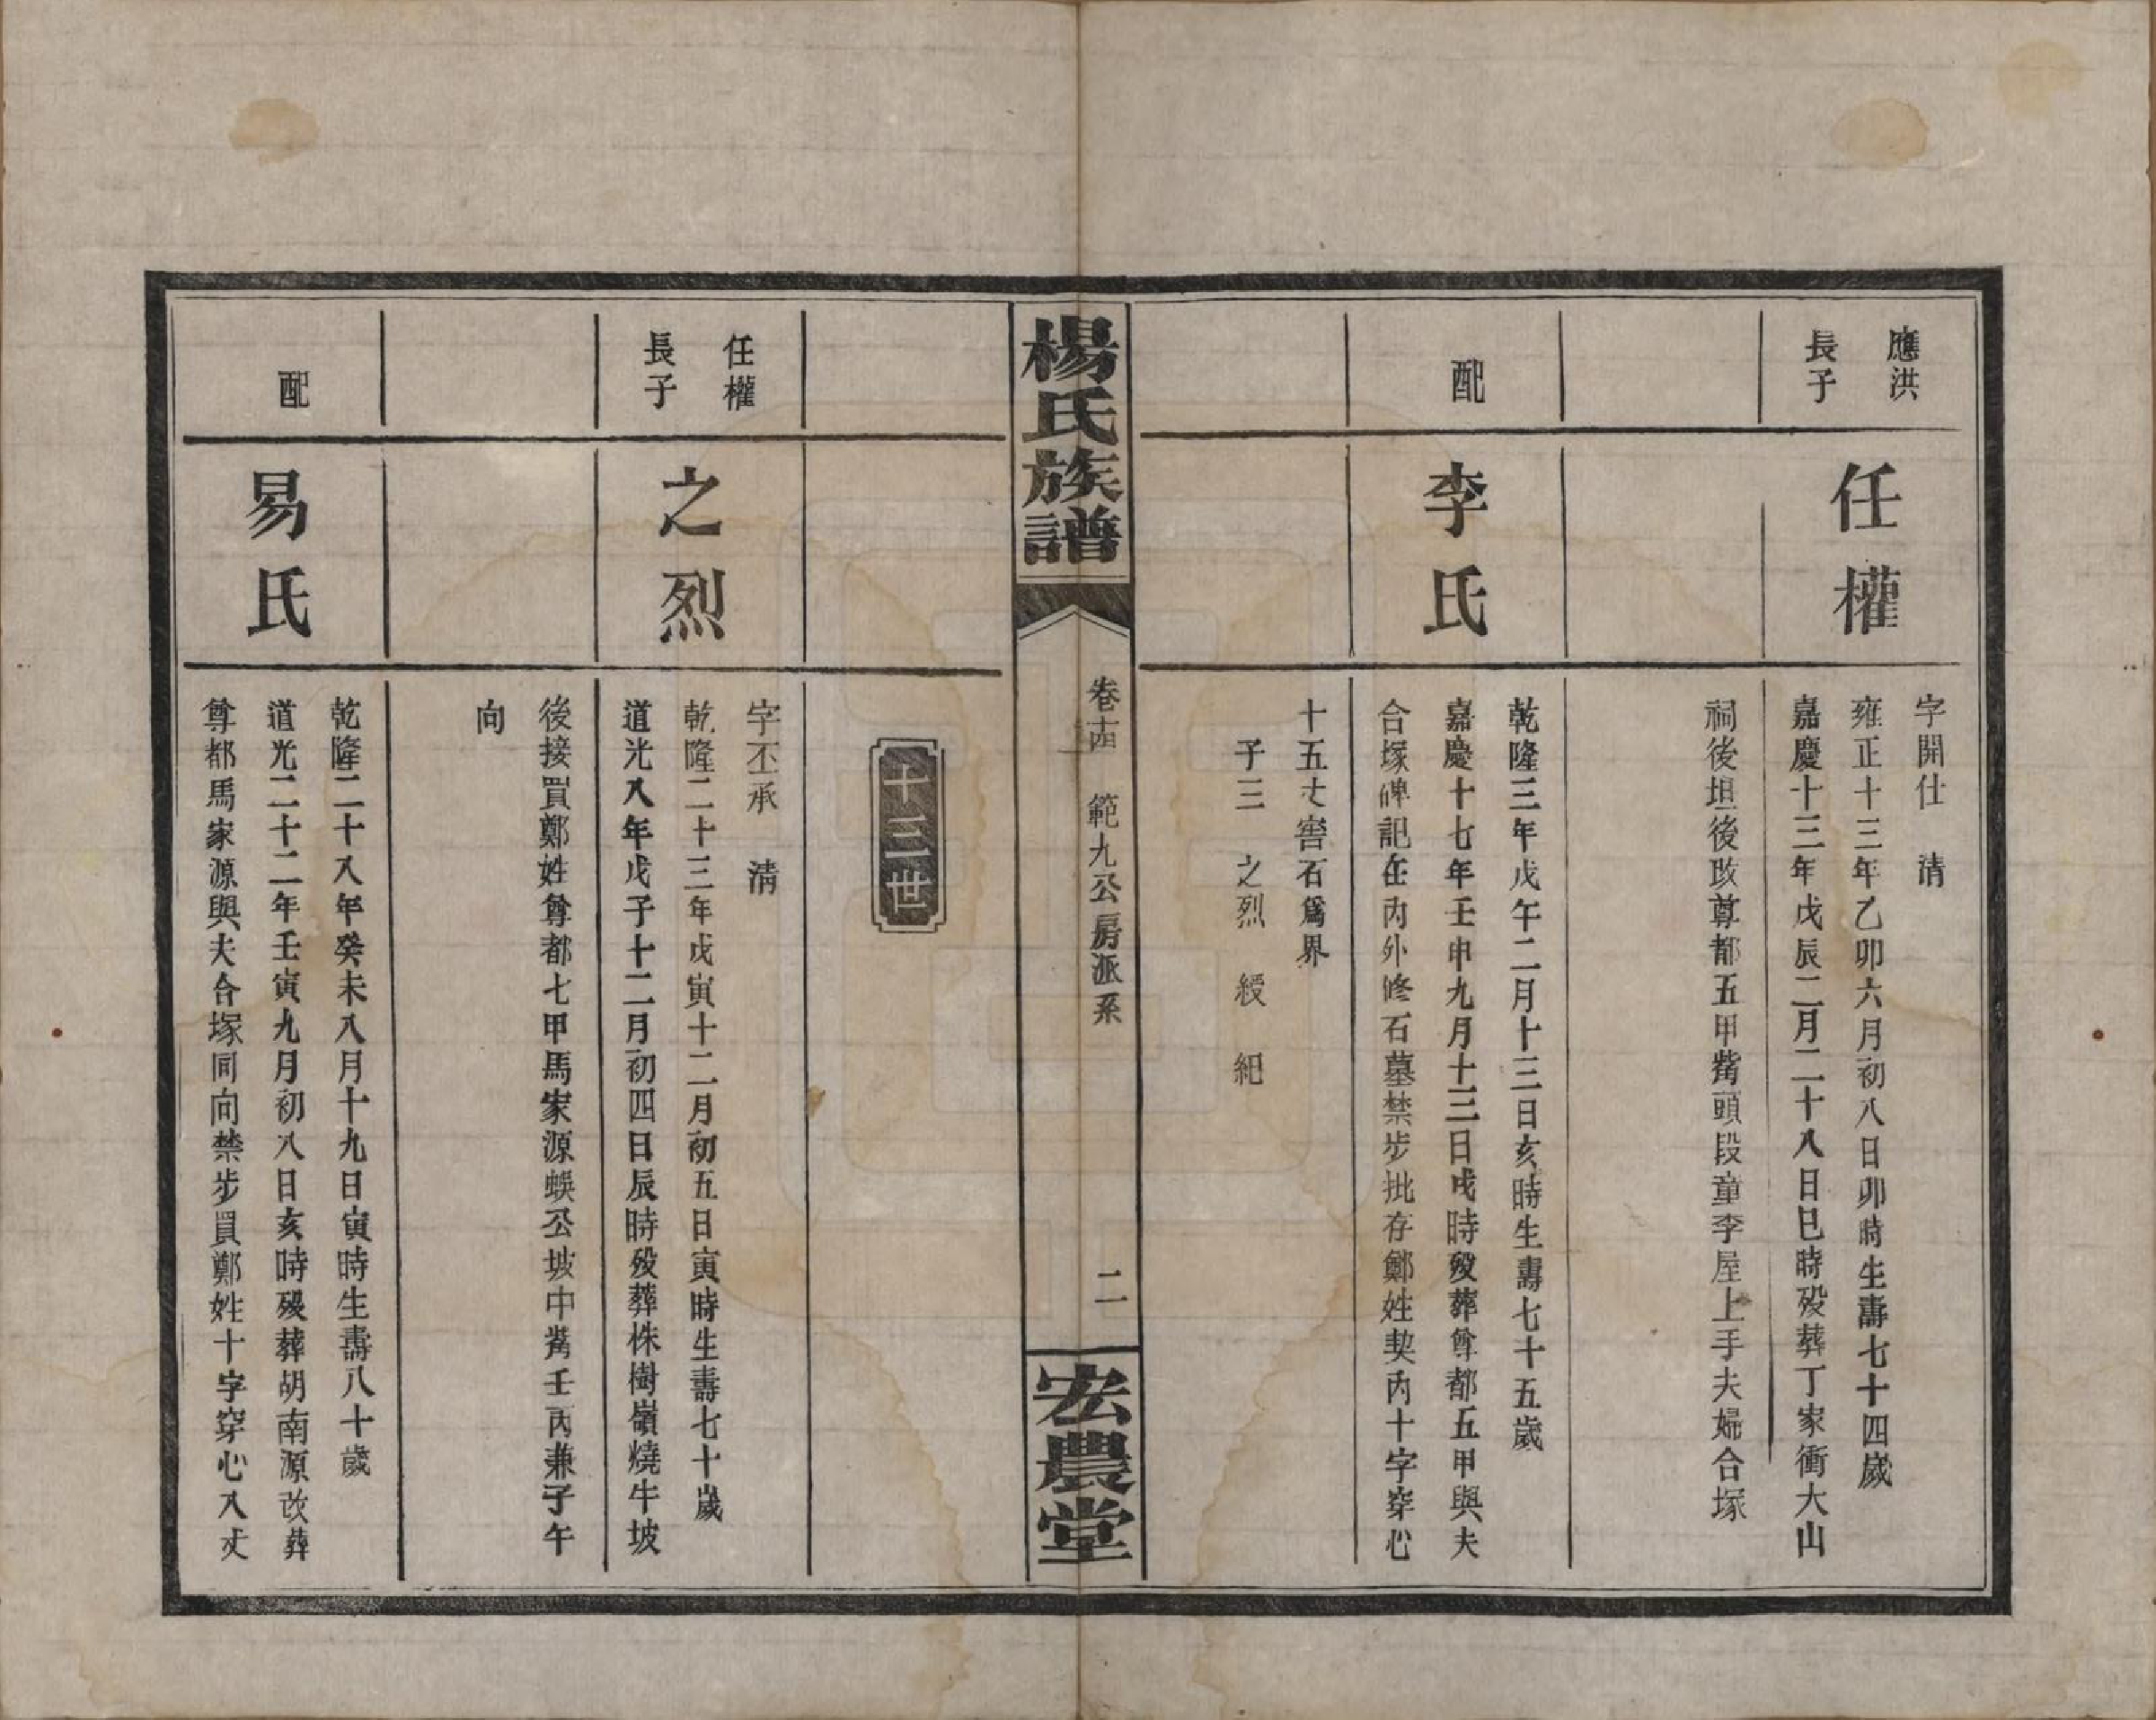 應洪
長子
任權
字開仕 清
雍正十三年乙卯六月初八日卯時生壽七十四歲
嘉慶十三年戊辰二月二十八日巳時殁葬丁家衝大山
祠後坦後改尊都五甲觜頭段童李屋上手夫婦合塚
配
李氏
乾隆三年戊午二月十三日亥時生壽七十五歲
嘉慶十七年壬申九月十三日戌時殁葬尊都五甲與夫
合塚碑記在內外修石墓禁步批存鄭姓契內十字穿心
十五丈窖石爲界
子三 之烈 綬 紀
楊氏族譜
卷十四 範九公房派系
二
宏農堂
十三世
任權
長子
之烈
字丕承 清
乾隆二十三年戊寅十二月初五日寅時生壽七十歲
道光八年戊子十二月初四日辰時殁葬株樹嶺燒牛坡
後接買鄭姓尊都七甲馬家源蜈公坡中觜壬丙兼子午
向
配
易氏
乾隆二十八年癸未八月十九日寅時生壽八十歲
道光二十二年壬寅九月初八日亥時殁葬胡南源改葬
尊都馬家源與夫合塚同向禁步買鄭姓十字穿心八丈